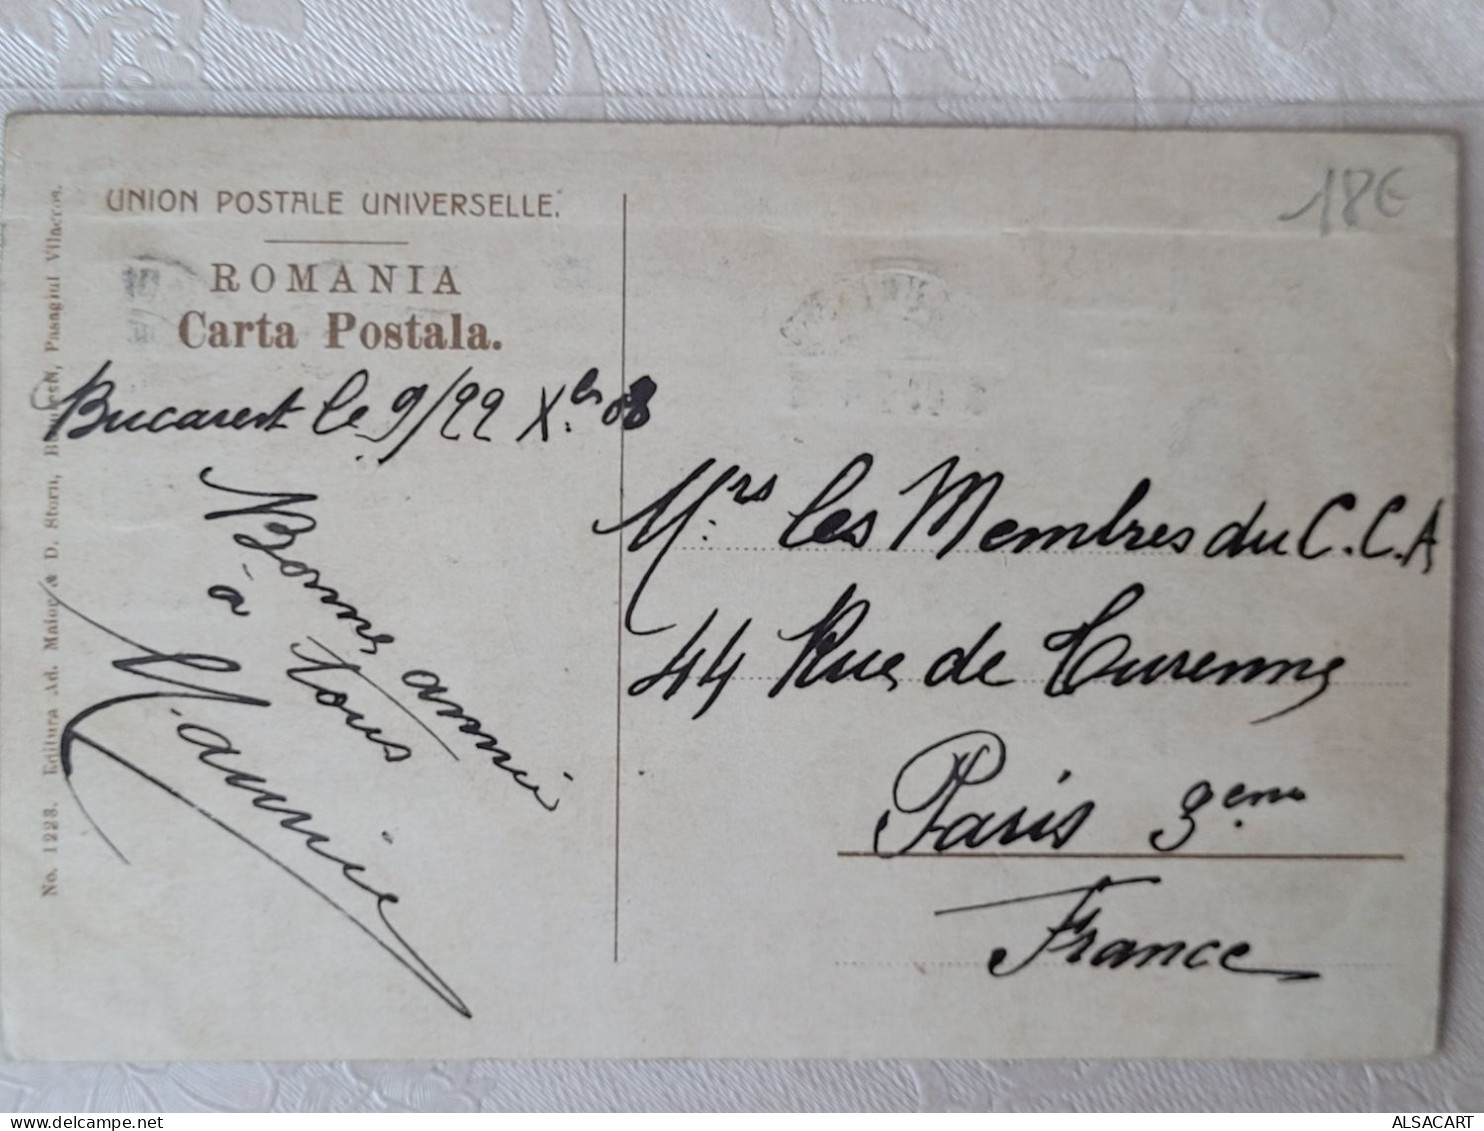 UNION POSTALE UNIVERSELLE.
ROMANIA
Carta Postala.
Bucarest le 9/22 Xbs 08
Bonne année
à tous
18€
Mrs les Membres du C.C.A
44 Rue de Turenne
Paris 3eme
France
No. 1223. Editura Ad. Maier & D. Stern, Bucuresti, Pasagiul Vilacros.
ALSACART